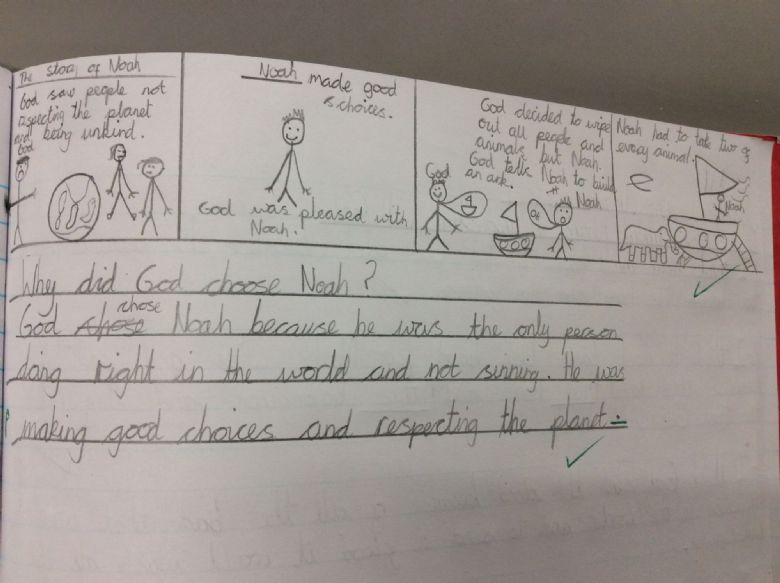 The story of Noah
God saw people not
respecting the planet
and being unkind.
God
Noah made good
choices.
God was pleased with
Noah.
God decided to wipe
out all people and
animals but Noah.
God tells Noah to build
an ark.
God
Noah
Noah had to take two of
every animal.
Noah
Why did God choose Noah?
chose
God Noah because he was the only person
doing right in the world and not sinning. He was
making good choices and respecting the planet.